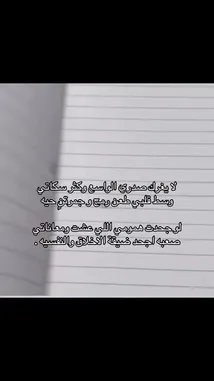 لا يغرك صدري الواسع وكثر سكاتي
وسط قلبي طعن رمح وجمرتنٍ حيه
لو جحدت همومي اللي عشت ومعاناتي
صعبه اجحد ضيقة الاخلاق والنفسيه .